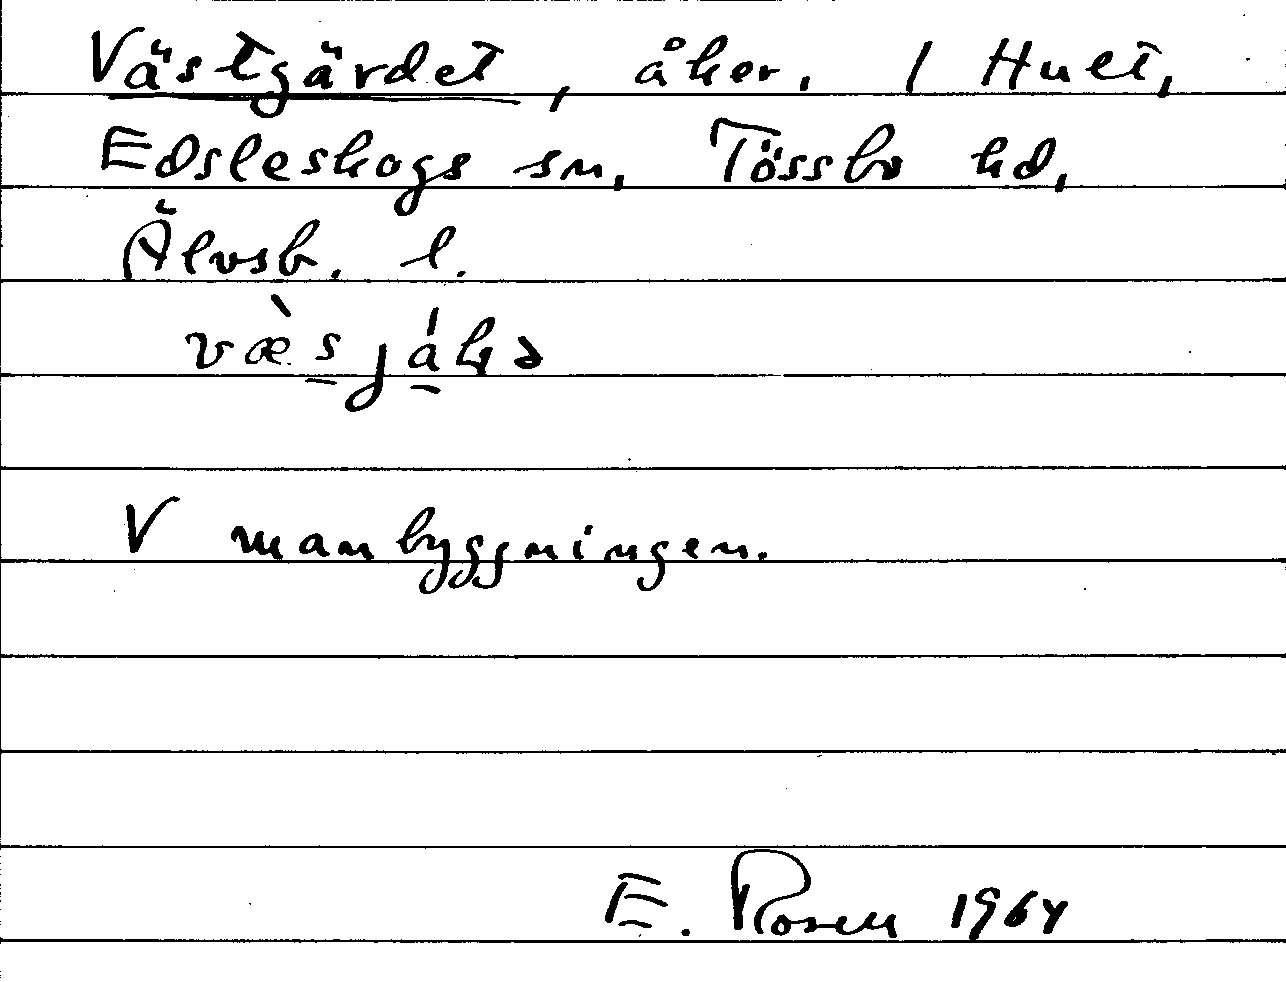 Västgärdet, åker, / Hult,
Edsleskogs sn, Tössbo hd,
Älvsb. l.
V manbyggningen.
E. Rosen 1964